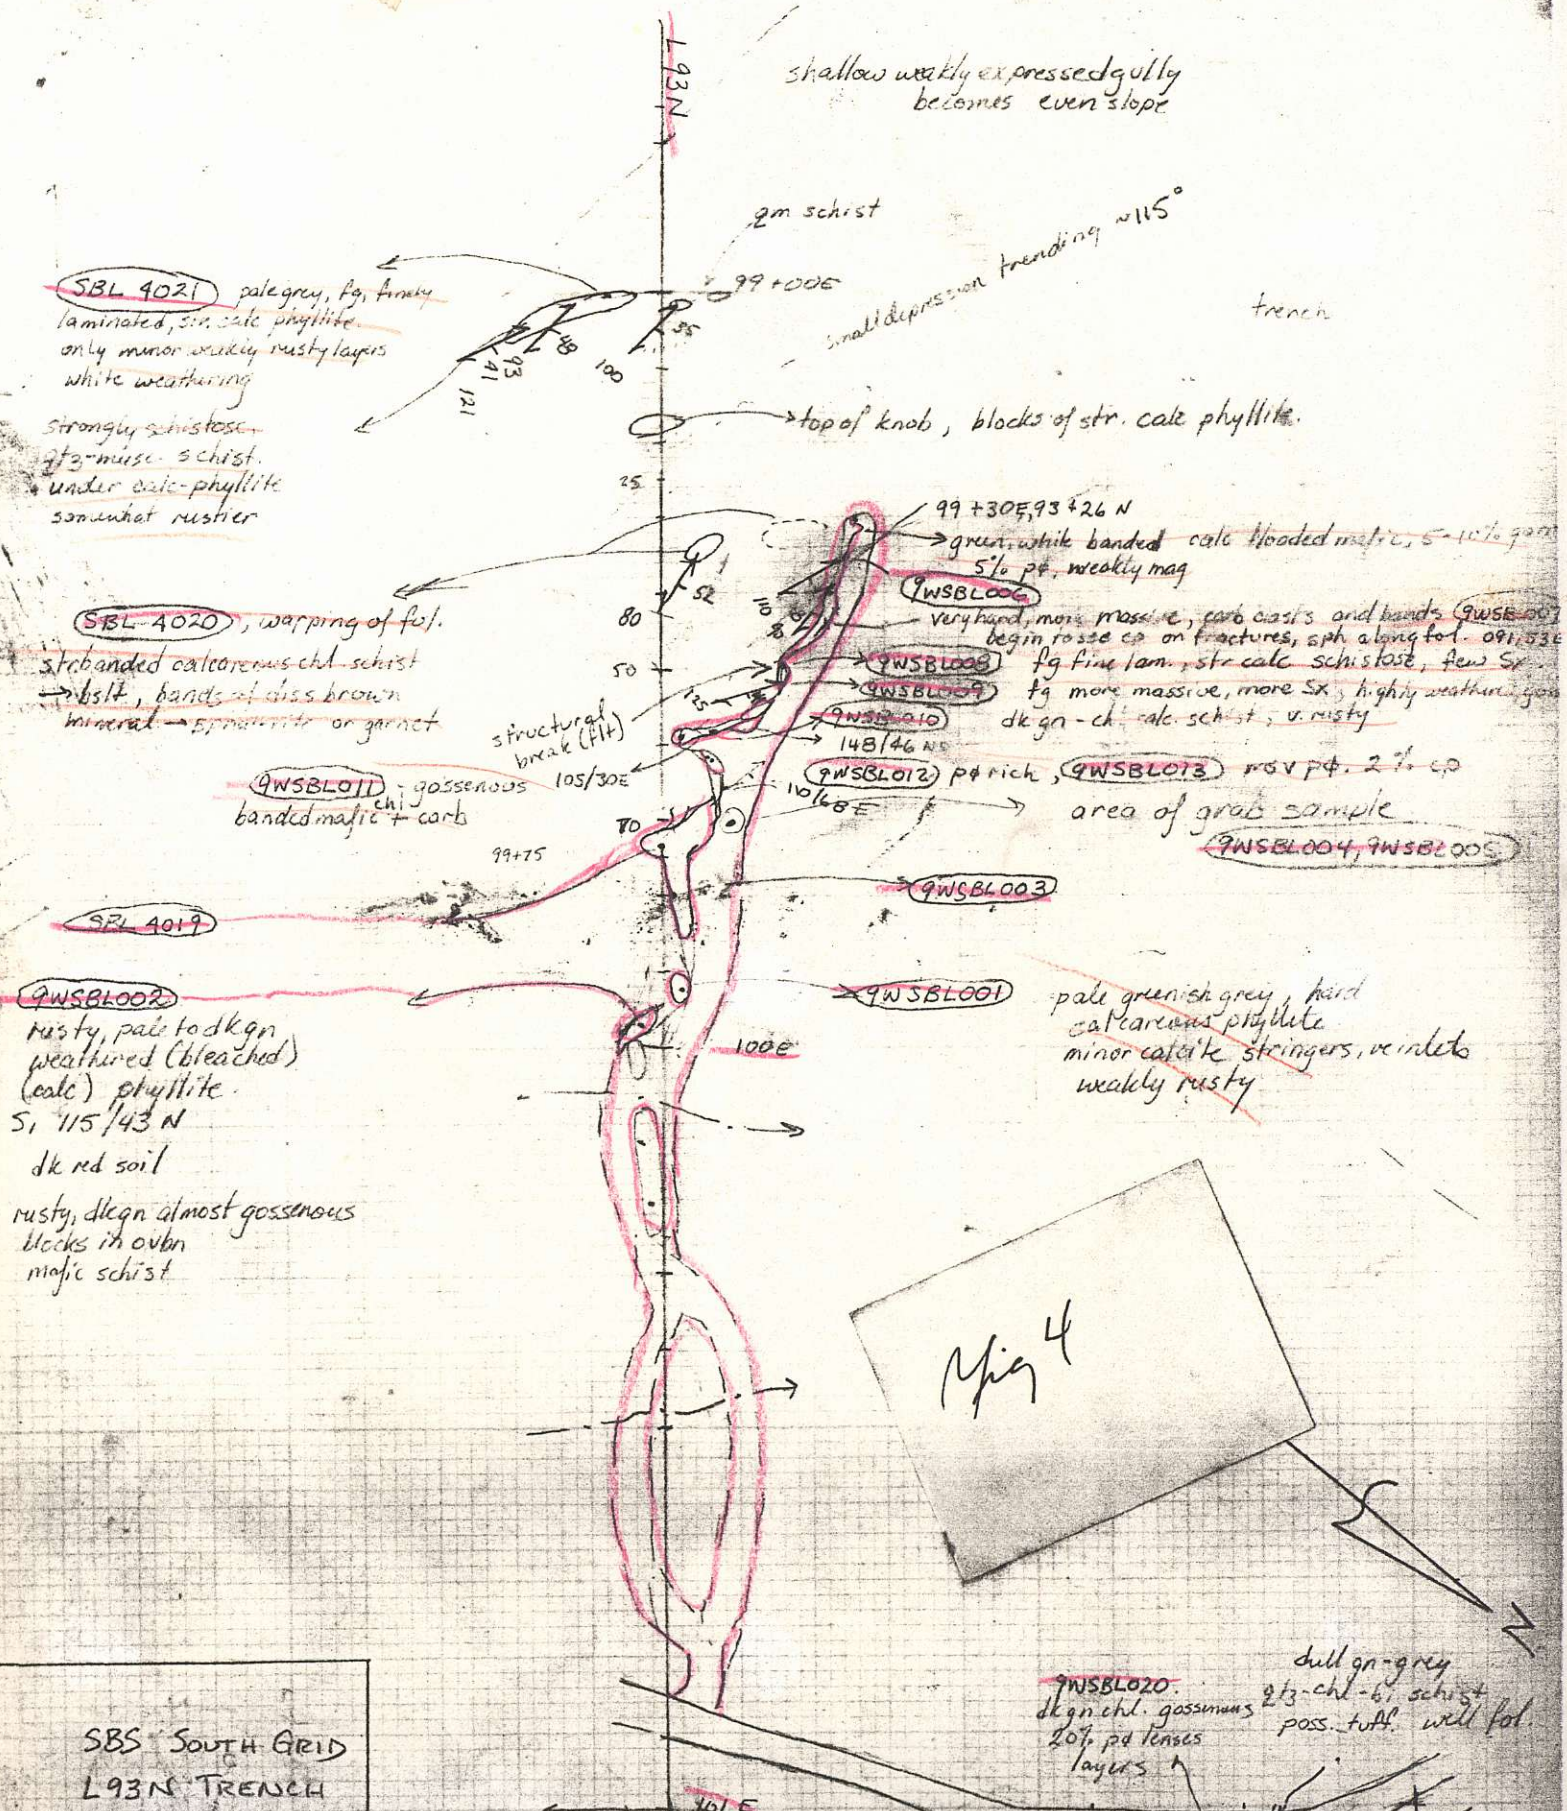 L93N
shallow weakly expressed gully
becomes even slope
qm schist
small depression trending ~115°
99+00E
trench
SBL 4021 pale grey, fg, finely
laminated, calc phyllite
only minor weakly rusty layers
white weathering
55
48
93
41
121
100
strongly schistose,
qtz-musc. schist.
under calc-phyllite
somewhat rustier
top of knob, blocks of str. calc phyllite.
25
99+30E, 93+26N
green, white banded calc flooded mafic, 5-10%
5% pφ, weakly mag
9WSBL006
52
110
80
SBL-4020, warping of fol.
str banded calcareous chl schist
→ bslt, bands of diss brown
mineral → or garnet
very hard, more massive, carb casts and bands
begin to see cp on fractures, sph along fol. 091,
50
9WSBL008 fg fine lam., str calc schistose, few Sx
9WSBL009 fg more massive, more Sx, highly
9WSBL010 dk gn-chl calc. schist, v. rusty
structural
break (flt)
148/46
105/30E
9WSBL011 gossenous
chl
banded mafic + carb
9WSBL012 pφ rich, 9WSBL013 msv pφ. 2% cp
110/68E
area of grab sample
9WSBL004, 9WSBL005
70
99+75
9WSBL003
SBL 4019
9WSBL002
rusty, pale to dkgn
weathered (bleached)
(calc) phyllite.
S₁ 115/43 N
dk red soil
rusty, dkgn almost gossenous
blocks in ovbn
mafic schist
9WSBL001
pale greenish grey, hard
calcareous phyllite
minor calcite stringers, veinlets
weakly rusty
100E
Fig 4
N
9WSBL020.
dkgn chl. gossenous
20% pφ lenses
layers
dull gn-grey
qtz-chl-bi schist
poss. tuff. well fol.
SBS SOUTH GRID
L93N TRENCH
101 E